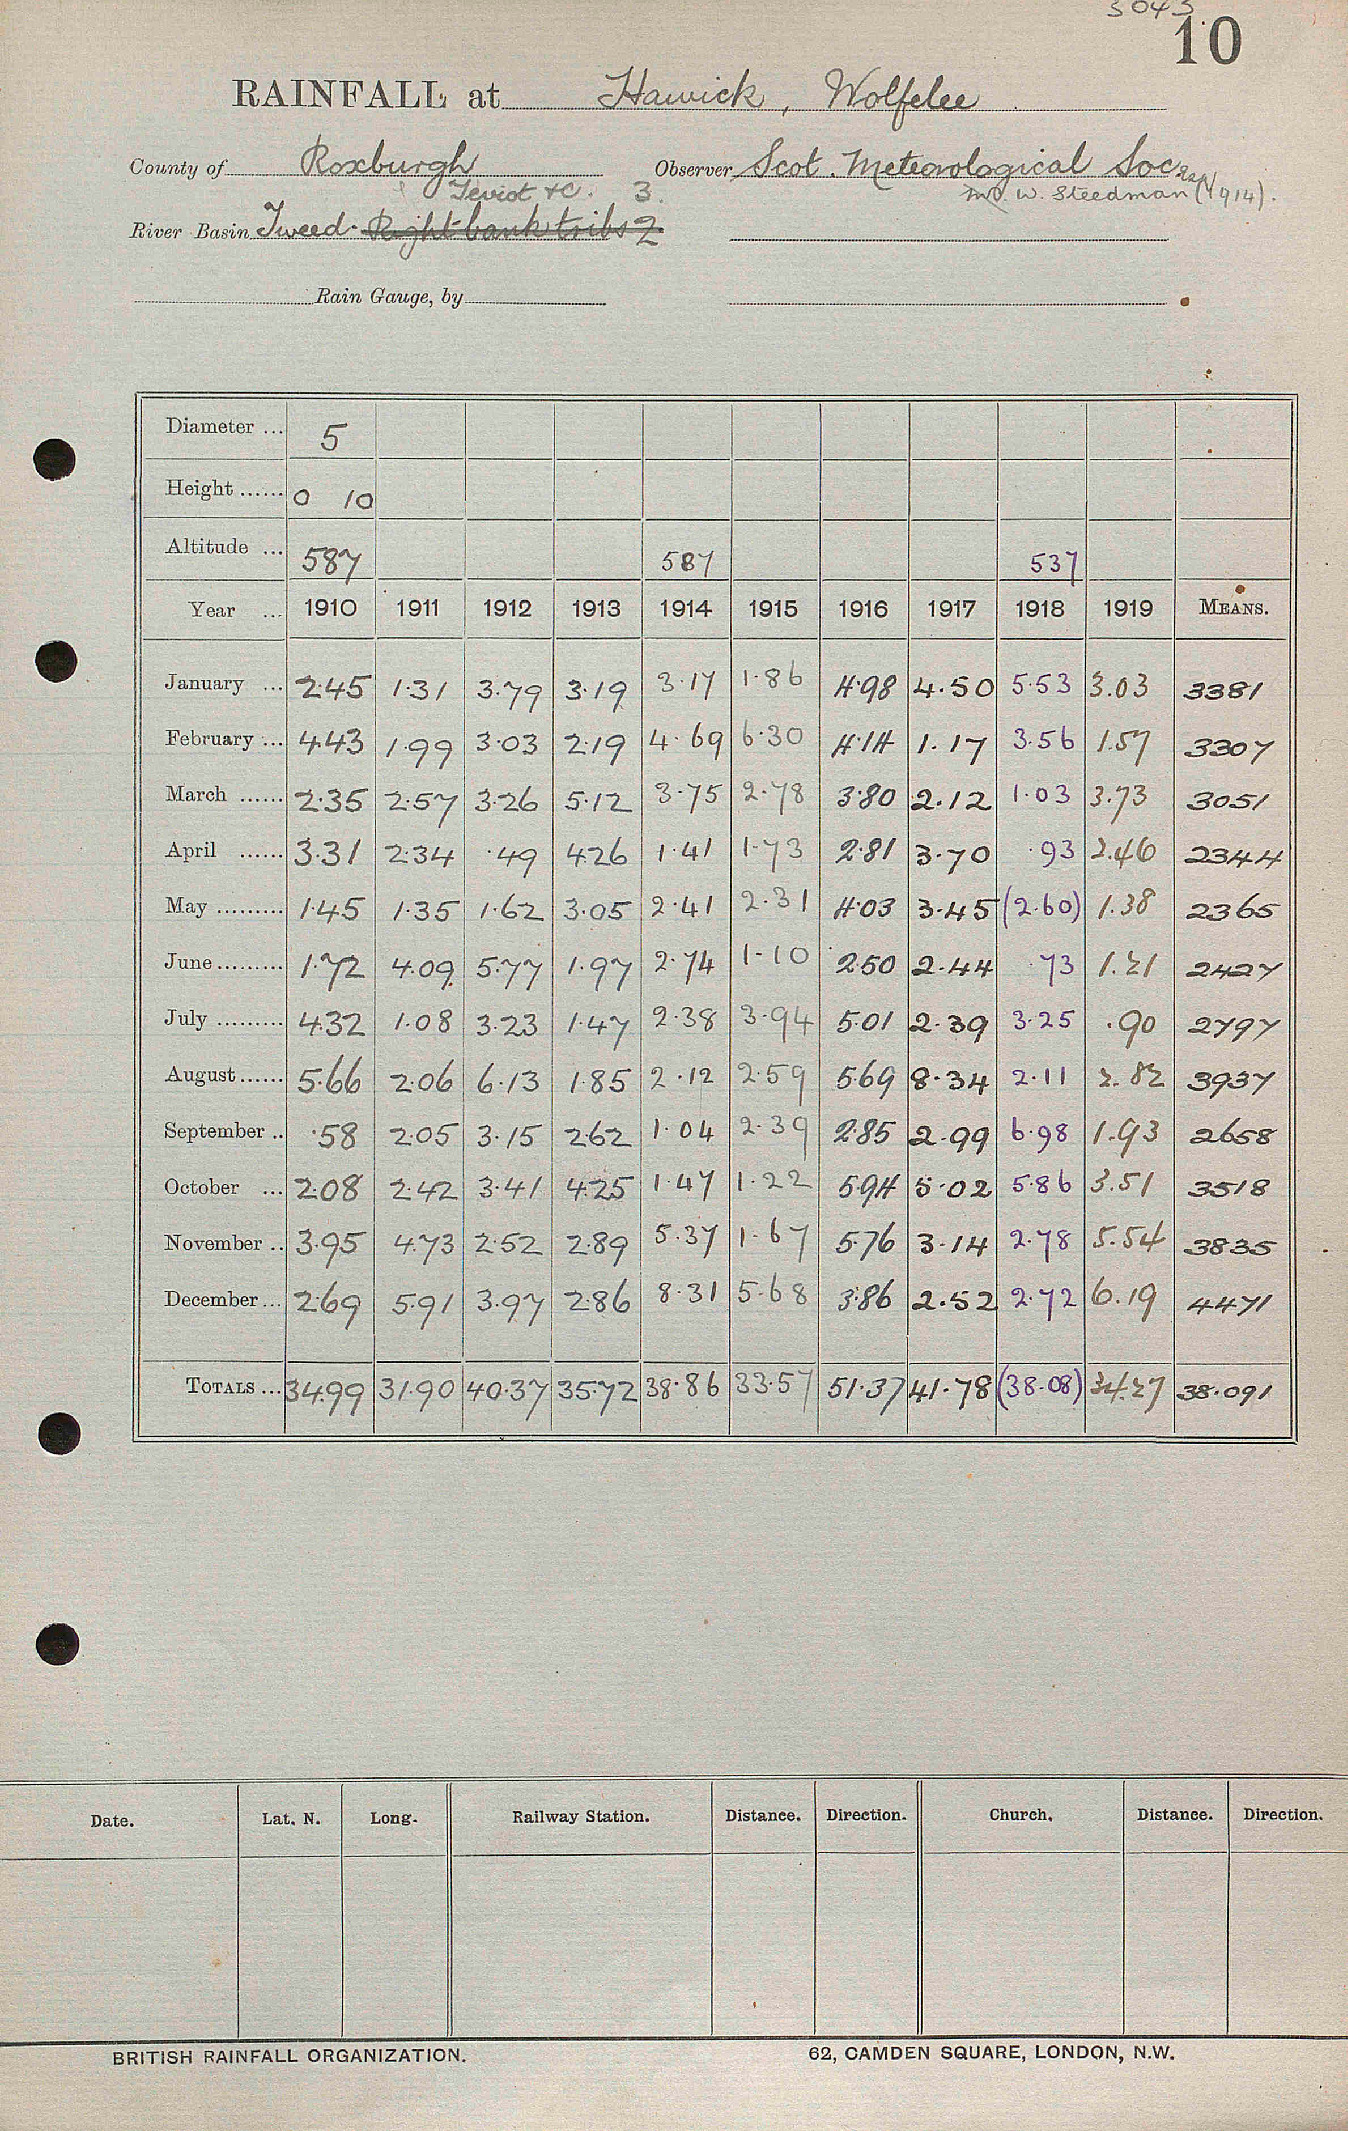 3043
10
RAINFALL at Hawick, Wolfelee
County of Roxburgh Observer Scot. Meteorological Soc
Teviot &c. 3. W. Steedman (1914).
River Basin Tweed - Right bank tribs 2
Rain Gauge, by
Diameter ... 5
Height ...... 0 10
Altitude ... 587 587 537
Year ... 1910 1911 1912 1913 1914 1915 1916 1917 1918 1919 MEANS.
January ... 2.45 1.31 3.79 3.19 3.17 1.86 4.98 4.50 5.53 3.03 3381
February ... 4.43 1.99 3.03 2.19 4.69 6.30 4.14 1.17 3.56 1.57 3307
March ...... 2.35 2.57 3.26 5.12 3.75 2.78 3.80 2.12 1.03 3.73 3051
April ...... 3.31 2.34 .49 4.26 1.41 1.73 2.81 3.70 .93 2.46 2344
May ......... 1.45 1.35 1.62 3.05 2.41 2.31 4.03 3.45 (2.60) 1.38 2365
June ......... 1.72 4.09 5.77 1.97 2.74 1.10 2.50 2.44 .73 1.21 2427
July ......... 4.32 1.08 3.23 1.47 2.38 3.94 5.01 2.39 3.25 .90 2797
August ...... 5.66 2.06 6.13 1.85 2.12 2.59 5.69 8.34 2.11 2.82 3937
September .. .58 2.05 3.15 2.62 1.04 2.39 2.85 2.99 6.98 1.93 2658
October ... 2.08 2.42 3.41 4.25 1.47 1.22 5.94 5.02 5.86 3.51 3518
November .. 3.95 4.73 2.52 2.89 5.37 1.67 5.76 3.14 2.78 5.54 3835
December ... 2.69 5.91 3.97 2.86 8.31 5.68 3.86 2.52 2.72 6.19 4471
TOTALS ... 34.99 31.90 40.37 35.72 38.86 33.57 51.37 41.78 (38.08) 34.27 38.091
Date. Lat. N. Long. Railway Station. Distance. Direction. Church. Distance. Direction.
BRITISH RAINFALL ORGANIZATION. 62, CAMDEN SQUARE, LONDON, N.W.